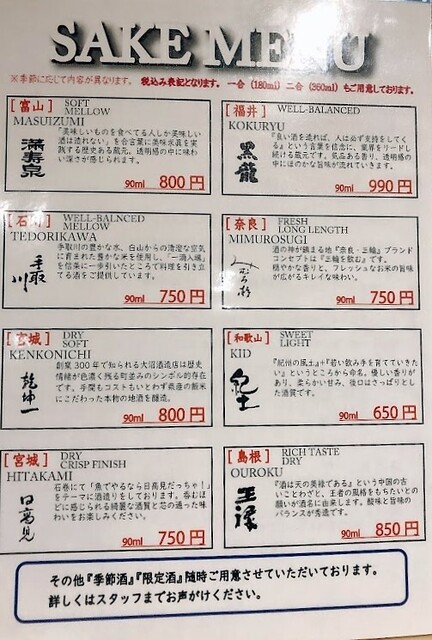 SAKE MENU
※季節に応じて内容が異なります。 税込み表記となります。一合(180ml)二合(360ml)もご用意しております。
[富山] SOFT
MELLOW
MASUIZUMI
満寿泉
『美味しいものを食べてる人しか美味しい
酒は造れない』を合言葉に美味求真を実
践する歴史ある蔵元。透明感の中に味わ
い深さが感じられます。
90ml 800円
[福井] WELL-BALANCED
KOKURYU
黒龍
『良い酒を造れば、人は必ず支持をしてく
る』という言葉を信念に、業界をリードし
続ける蔵元です。気品ある香り、透明感の
中にほのかな旨味が流れていきます。
90ml 990円
[石川] WELL-BALNCED
MELLOW
TEDORIKAWA
手取川
手取川の豊かな水、白山からの清澄な空気
に育まれた豊かな米を使用し、
を信条に一歩引いたところで料理を引き立
てる酒をご提供しています。
90ml 750円
[奈良] FRESH
LONG LENGTH
MIMUROSUGI
みむろ杉
酒の神が鎮まる地『奈良・三輪』ブランド
コンセプトは『三輪を飲む』です。
穏やかな香りと、フレッシュなお米の旨味
が広がるキレイな味わい。
90ml 750円
[宮城] DRY
SOFT
KENKONICHI
乾坤一
創業300年で知られる大沼酒造店は歴史
情緒が色濃く残る町並みのシンボル的存在
です。手間もコストもいとわず県産の飯米
にこだわった本物の地酒を醸造。
90ml 800円
[和歌山] SWEET
LIGHT
KID
紀土
『紀州の風土』+『若い飲み手を育てていきた
い』というところから命名。優しい香りが
あり、柔らかい甘み、後口はさっぱりとし
た酒質です。
90ml 650円
[宮城] DRY
CRISP FINISH
HITAKAMI
日高見
石巻にて「魚でやるなら日高見だっちゃ!」
をテーマに酒造りをしております。呑むほ
どに感じられる綺麗な酒質と芯の通った味
わいをお楽しみください。
90ml 750円
[島根] RICH TASTE
DRY
OUROKU
王祿
『酒は天の美禄である』という中国の古
いことわざと、王者の風格をもちたいとの
願いが酒名に由来します。酸味と旨味の
バランスが秀逸です。
90ml 850円
その他『季節酒』『限定酒』随時ご用意させていただいております。
詳しくはスタッフまでお声がけください。